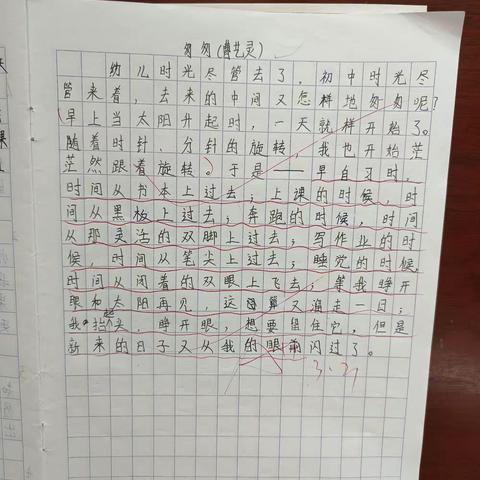 匆匆(曹艺灵)
幼儿时光尽管去了,初中时光尽
管来着,去来的中间又怎样地匆匆呢?
早上当太阳升起时,一天就样开始了。
随着时针、分针的旋转,我也开始茫
茫然跟着旋转。于是——早自习时,
时间从书本上过去;上课的时候,时
间从黑板上过去;奔跑的时候,时间
从那灵活的双脚上过去;写作业的时
候,时间从笔尖上过去;睡觉的时候,
时间从闭着的双眼上飞去;等我睁开
眼和太阳再见,这算又溜走一日;
我抬起头,睁开眼,想要留住它,但是
新来的日子又从我的眼前闪过了。
3.21